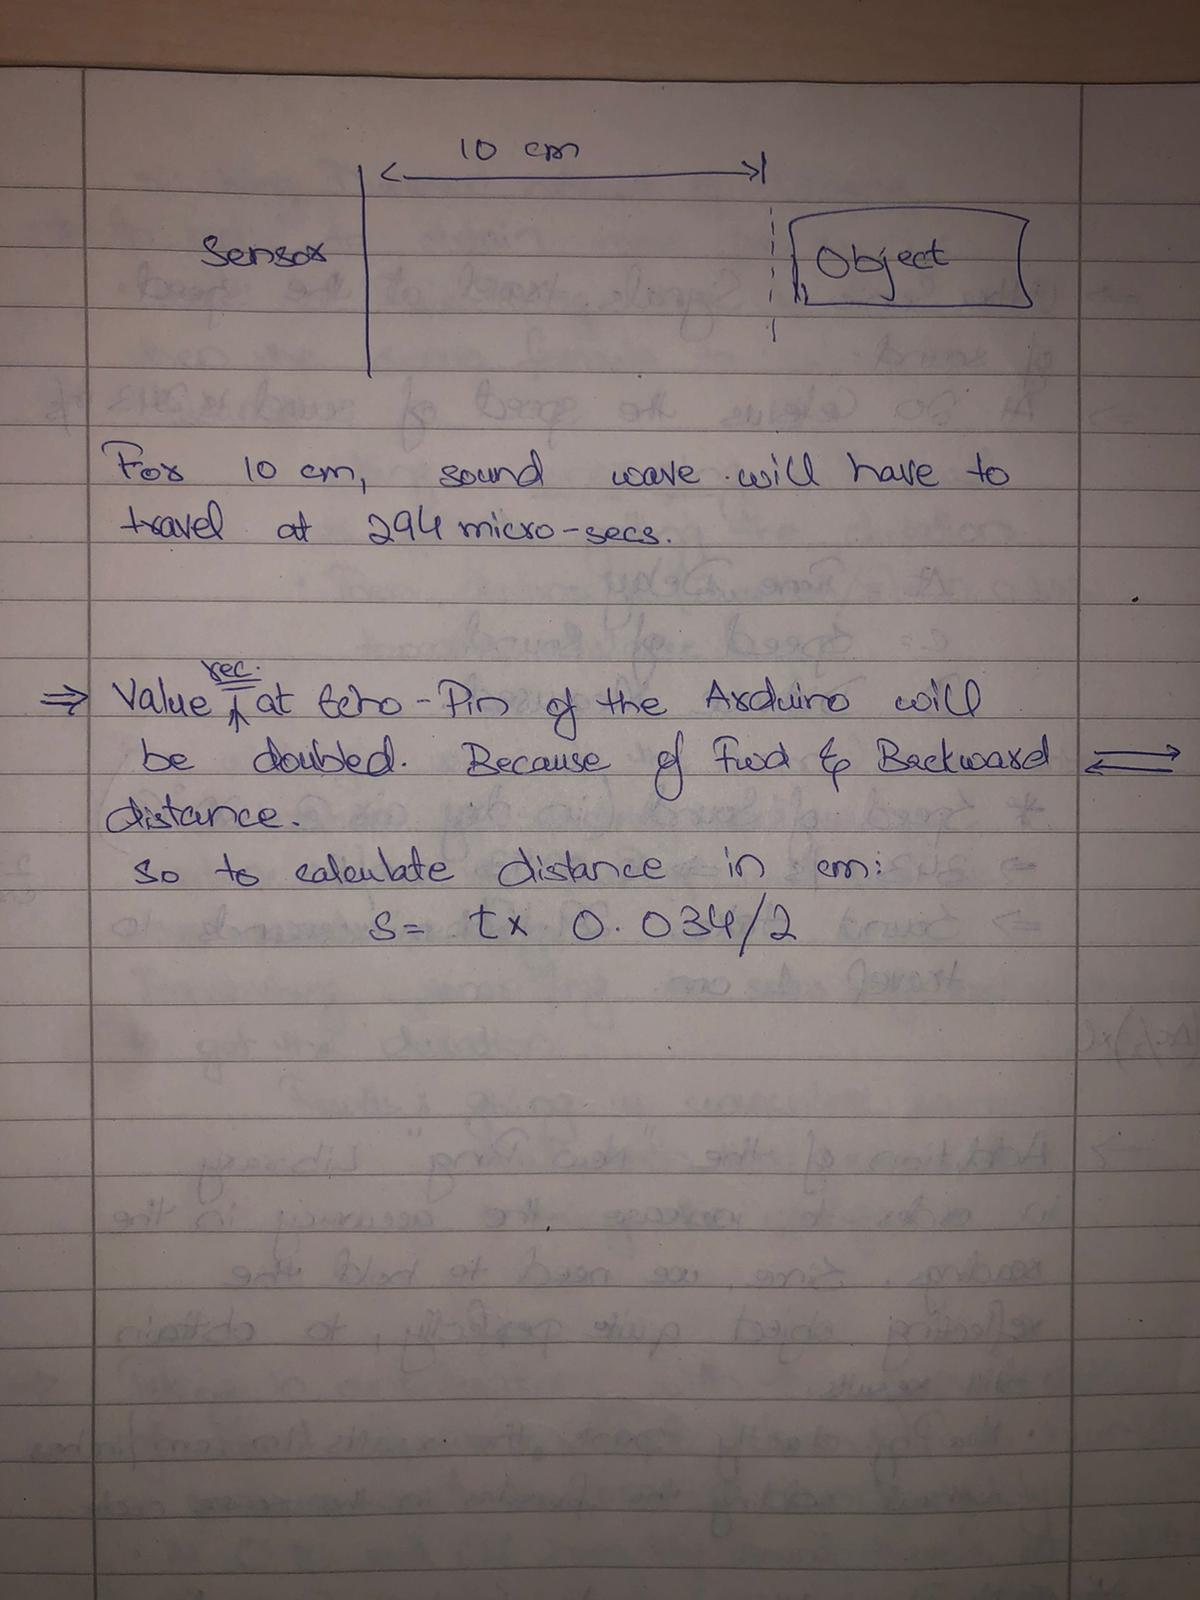 10 cm
Sensor
Object
For 10 cm, sound wave will have to
travel at 294 micro-secs.
⇒ Value rec. at Echo-Pin of the Arduino will
be doubled. Because of Fwd & Backward
distance.
so to calculate distance in cm:
s= t x 0.034/2